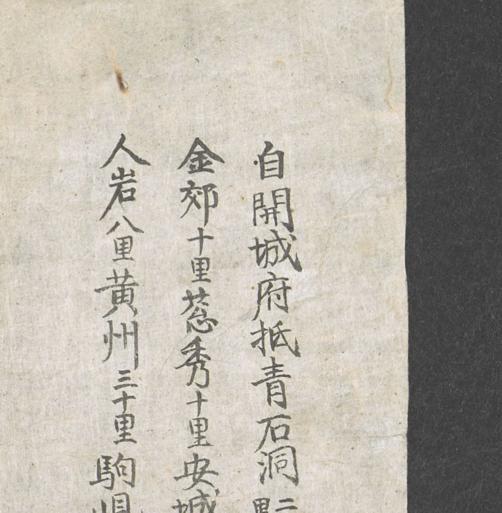 自開城府抵青石洞二
金郊十里葱秀十里安城
人岩八里黄州三十里駒峴